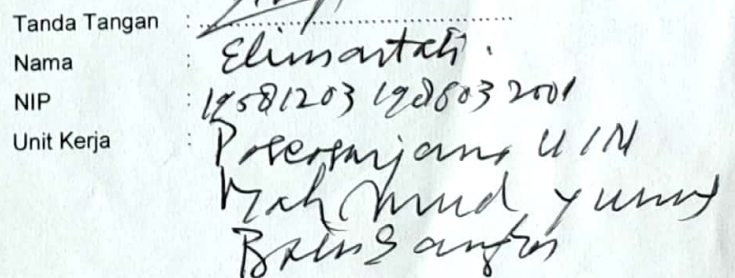 Tanda Tangan :
Nama : Elimartati.
NIP : 19581203 198603 2001
Unit Kerja : Pascasarjana UIN
Mahmud Yunus
Batusangkar